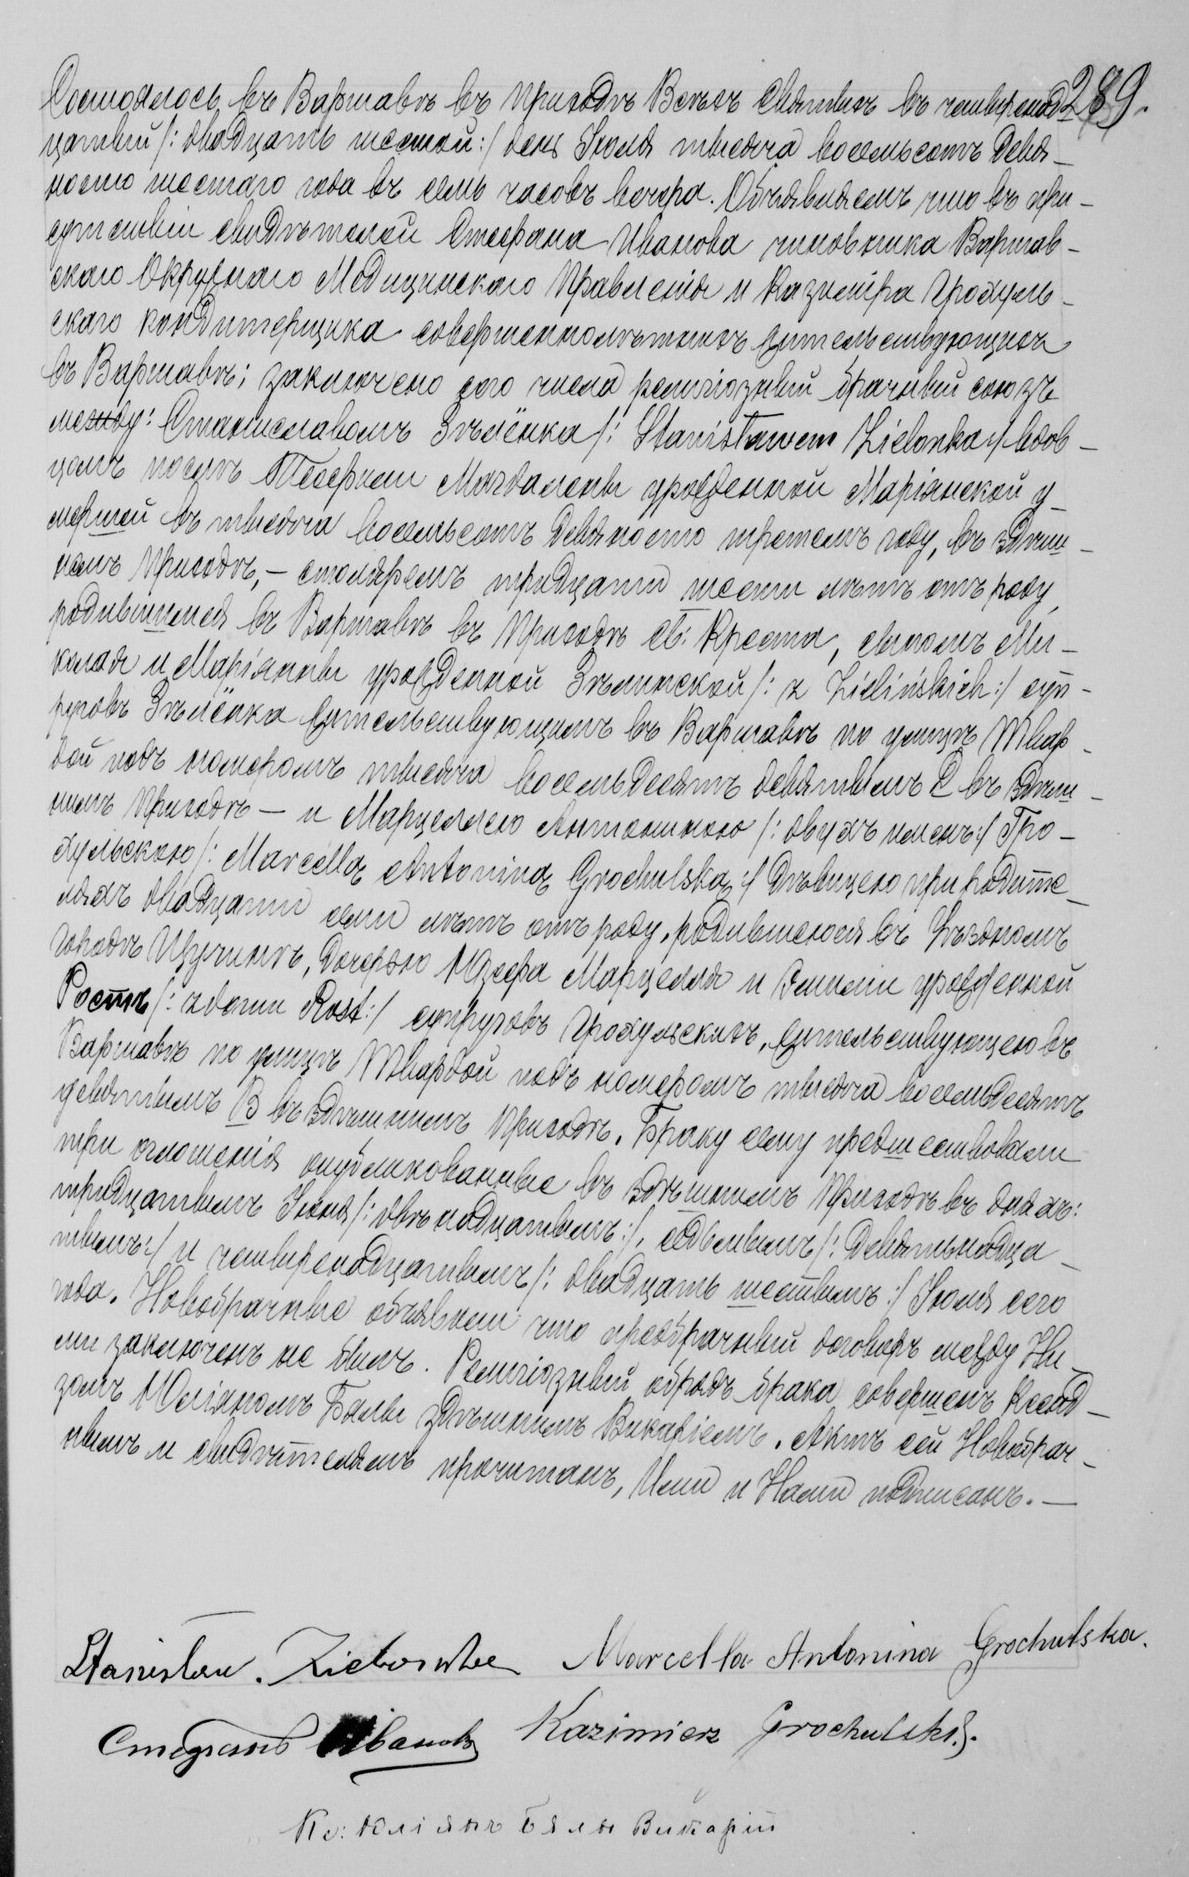 Состоялось въ Варшавѣ въ приходѣ Всѣхъ Святыхъ въ четырнад- 289.
цатый /: двадцать шестой :/ день Іюля тысяча восемьсотъ девя-
носто шестаго года въ семь часовъ вечера. Объявляемъ что въ при-
сутствіи свидѣтелей Стефана Иванова чиновника Варшав-
скаго Окружнаго Медицинскаго Правленія и Казиміра Грохуль-
скаго кондитерщика совершеннолѣтнихъ жительствующихъ
въ Варшавѣ; заключено сего числа религіозный брачный союзъ
между: Станиславомъ Зѣлёнка /: Stanisławem Zielonka :/ вдов-
цемъ послѣ Теофили Магдалены урожденной Маріянской у-
мершей въ тысяча восемьсотъ девяносто третьемъ году, въ здѣш-
немъ приходѣ, — столяремъ тридцати шести лѣтъ отъ роду,
родившимся въ Варшавѣ въ приходѣ Св: Креста, сыномъ Ми-
колая и Маріянны урожденной Зѣлинской /: z Zielińskich :/ суп-
руговъ Зѣлёнка жительствующимъ въ Варшавѣ по улицѣ Твар-
дой подъ номеромъ тысяча восемьдесятъ девятымъ С въ здѣш-
немъ приходѣ — и Марцеллею Антониною /: двухъ именъ :/ Гро-
хульскою /: Marcellą Antoniną Grochulską :/ дѣвицею при родите-
ляхъ двадцати семи лѣтъ отъ роду, родившеюся въ Уѣздномъ
городѣ Щучинѣ, дочерью Юзефа Марцелля и Эмиліи урожденной
Ростъ /: z domu Rost :/ супруговъ Грохульскихъ, жительствующею въ
Варшавѣ по улицѣ Твардой подъ номеромъ тысяча восемьдесятъ
девятымъ В въ здѣшнемъ приходѣ. Браку сему предшествовали
три оглашенія опубликованные въ здѣшнемъ приходѣ въ дняхъ:
тридцатымъ Іюня /: двѣнадцатымъ :/, седьмымъ /: девятнадца-
тымъ :/ и четырнадцатымъ /: двадцать шестымъ :/ Іюля сего
года. Новобрачные объявили что предбрачный договоръ между Ни-
ми заключенъ не былъ. Религіозный обрядъ брака совершенъ Ксенд-
зомъ Юліяномъ Бялы здѣшнимъ Викаріемъ. Актъ сей Новобрач-
нымъ и свидѣтелямъ прочитанъ, Ими и Нами подписанъ. —
Stanisław. Zielonka Marcella Antonina Grochulska.
Стефанъ Ивановъ Kazimierz Grochulski.
Кс: Юліянъ Бялы Викарій